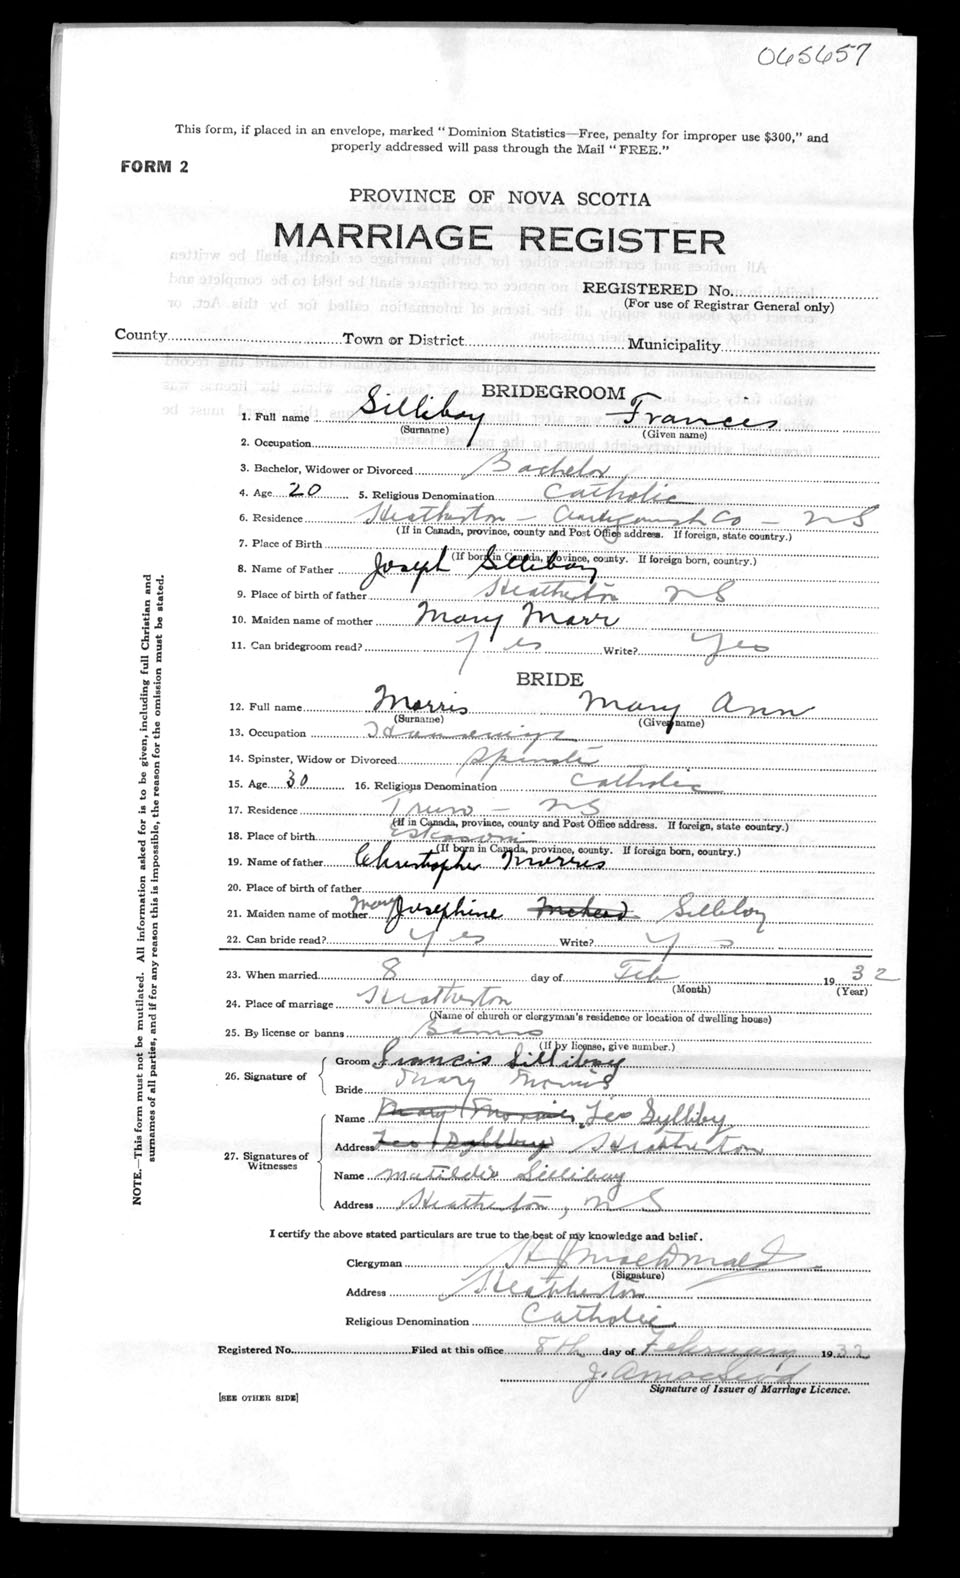 065657
This form, if placed in an envelope, marked "Dominion Statistics—Free, penalty for improper use $300," and
properly addressed will pass through the Mail "FREE."
FORM 2
PROVINCE OF NOVA SCOTIA
MARRIAGE REGISTER
REGISTERED No.
(For use of Registrar General only)
County Town or District Municipality
BRIDEGROOM
1. Full name Silliboy Francis
(Surname) (Given name)
2. Occupation
3. Bachelor, Widower or Divorced Bachelor
4. Age 20 5. Religious Denomination Catholic
6. Residence Heatherton - Antigonish Co - NS
(If in Canada, province, county and Post Office address. If foreign, state country.)
7. Place of Birth
(If born in Canada, province, county. If foreign born, country.)
8. Name of Father Joseph Silliboy
9. Place of birth of father Heatherton NS
10. Maiden name of mother Mary Marr
11. Can bridegroom read? Yes Write? Yes
BRIDE
12. Full name Morris Mary Ann
(Surname) (Given name)
13. Occupation
14. Spinster, Widow or Divorced Spinster
15. Age 30 16. Religious Denomination Catholic
17. Residence Truro - NS
(If in Canada, province, county and Post Office address. If foreign, state country.)
18. Place of birth Eskasoni
(If born in Canada, province, county. If foreign born, country.)
19. Name of father Christopher Morris
20. Place of birth of father
21. Maiden name of mother Mary Josephine Silliboy
22. Can bride read? Yes Write? Yes
23. When married 8 day of Feb 1932
(Month) (Year)
24. Place of marriage Heatherton
(Name of church or clergyman's residence or location of dwelling house)
25. By license or banns Banns
(If by license, give number.)
26. Signature of Groom Francis Silliboy
Bride Mary Morris
27. Signatures of Witnesses Name Mary Morris Leo Sylliby
Address Leo Sylliby Heatherton
Name Matilda Silliboy
Address Heatherton, NS
I certify the above stated particulars are true to the best of my knowledge and belief.
Clergyman H J MacDonald
(Signature)
Address Heatherton
Religious Denomination Catholic
Registered No. Filed at this office 8th day of February 1932
J. A. MacLeod
Signature of Issuer of Marriage Licence.
[SEE OTHER SIDE]
NOTE.—This form must not be mutilated. All information asked for is to be given, including full Christian and
surnames of all parties, and if for any reason this is impossible, the reason for the omission must be stated.